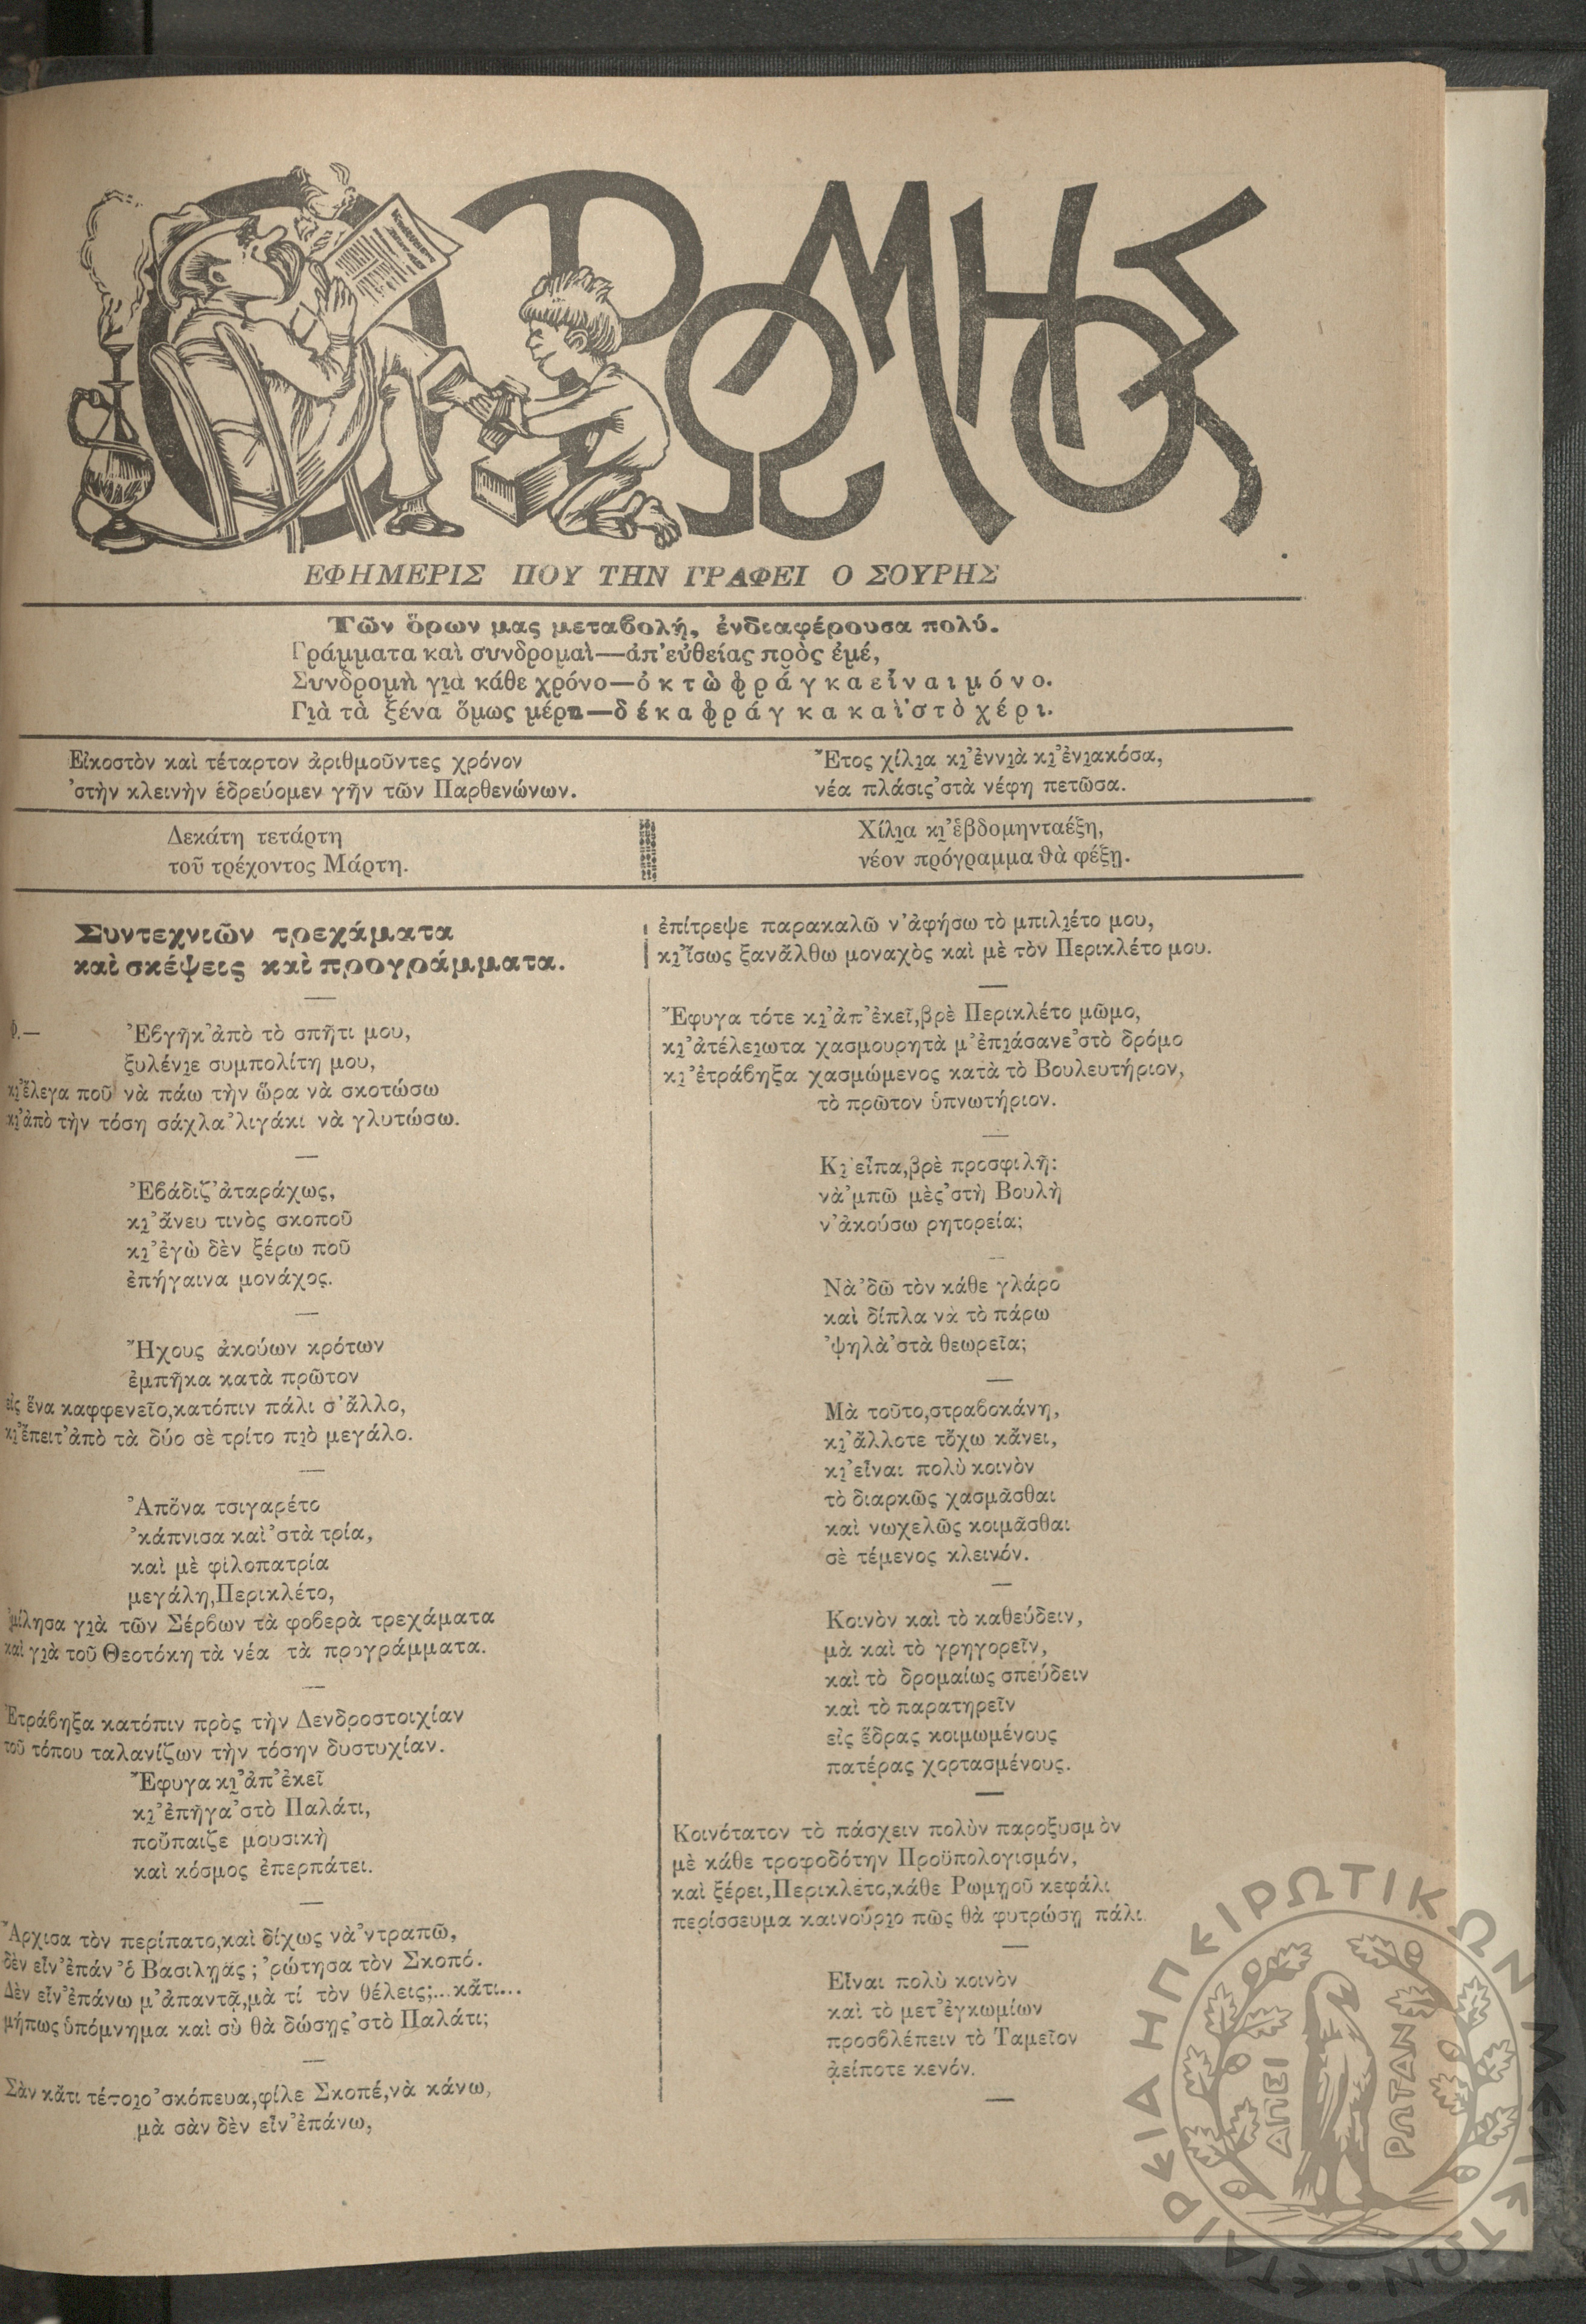 Ο ΡΩΜΗΟΣ
ΕΦΗΜΕΡΙΣ ΠΟΥ ΤΗΝ ΓΡΑΦΕΙ Ο ΣΟΥΡΗΣ
Τῶν ὅρων μας μεταβολή, ἐνδιαφέρουσα πολύ.
Γράμματα καὶ συνδρομαὶ—ἀπ' εὐθείας πρὸς ἐμέ,
Συνδρομὴ γιὰ κάθε χρόνο—ὀκτὼ φράγκα εἶναι μόνο.
Γιὰ τὰ ξένα ὅμως μέρη—δέκα φράγκα καὶ 'στὸ χέρι.
Εἰκοστὸν καὶ τέταρτον ἀριθμοῦντες χρόνον
'στὴν κλεινὴν ἑδρεύομεν γῆν τῶν Παρθενώνων.
Ἔτος χίλια κι' ἐννιὰ κι' ἐνιακόσα,
νέα πλάσις 'στὰ νέφη πετῶσα.
Δεκάτη τετάρτη
τοῦ τρέχοντος Μάρτη.
Χίλια κι' ἑβδομηνταέξη,
νέον πρόγραμμα θὰ φέξῃ.
Συντεχνιῶν τρεχάματα
καὶ σκέψεις καὶ προγράμματα.
Φ.— Ἐβγῆκ' ἀπὸ τὸ σπῆτι μου,
ξυλένιε συμπολίτη μου,
κι' ἔλεγα ποῦ νὰ πάω τὴν ὥρα νὰ σκοτώσω
κι' ἀπὸ τὴν τόση σάχλα 'λιγάκι νὰ γλυτώσω.
Ἐβάδιζ' ἀταράχως,
κι' ἄνευ τινὸς σκοποῦ
κι' ἐγὼ δὲν ξέρω ποῦ
ἐπήγαινα μονάχος.
Ἤχους ἀκούων κρότων
ἐμπῆκα κατὰ πρῶτον
εἰς ἕνα καφφενεῖο, κατόπιν πάλι σ' ἄλλο,
κι' ἔπειτ' ἀπὸ τὰ δύο σὲ τρίτο πιὸ μεγάλο.
Ἀπὄνα τσιγαρέτο
'κάπνισα καὶ 'στὰ τρία,
καὶ μὲ φιλοπατρία
μεγάλη, Περικλέτο,
'μίλησα γιὰ τῶν Σέρβων τὰ φοβερὰ τρεχάματα
καὶ γιὰ τοῦ Θεοτόκη τὰ νέα τὰ προγράμματα.
Ἐτράβηξα κατόπιν πρὸς τὴν Δενδροστοιχίαν
τοῦ τόπου ταλανίζων τὴν τόσην δυστυχίαν.
Ἔφυγα κι' ἀπ' ἐκεῖ
κι' ἐπῆγα 'στὸ Παλάτι,
ποὔπαιζε μουσικὴ
καὶ κόσμος ἐπερπάτει.
Ἄρχισα τὸν περίπατο, καὶ δίχως νὰ 'ντραπῶ,
δὲν εἶν' ἐπάν' ὁ Βασιληᾶς; 'ρώτησα τὸν Σκοπό.
Δὲν εἶν' ἐπάνω μ' ἀπαντᾷ, μὰ τί τὸν θέλεις;... κᾶτι...
μήπως ὑπόμνημα καὶ σὺ θὰ δώσῃς 'στὸ Παλάτι;
Σὰν κᾶτι τέτοιο 'σκόπευα, φίλε Σκοπέ, νὰ κάνω,
μὰ σὰν δὲν εἶν' ἐπάνω,
ἐπίτρεψε παρακαλῶ ν' ἀφήσω τὸ μπιλιέτο μου,
κι' ἴσως ξανἄλθω μοναχὸς καὶ μὲ τὸν Περικλέτο μου.
Ἔφυγα τότε κι' ἀπ' ἐκεῖ, βρὲ Περικλέτο μῶμο,
κι' ἀτέλειωτα χασμουρητὰ μ' ἐπιάσανε 'στὸ δρόμο
κι' ἐτράβηξα χασμώμενος κατὰ τὸ Βουλευτήριον,
τὸ πρῶτον ὑπνωτήριον.
Κι' εἶπα, βρὲ προσφιλῆ:
νὰ 'μπῶ μὲς 'στὴ Βουλὴ
ν' ἀκούσω ρητορεία;
Νὰ 'δῶ τὸν κάθε γλάρο
καὶ δίπλα νὰ τὸ πάρω
'ψηλὰ 'στὰ θεωρεῖα;
Μὰ τοῦτο, στραβοκάνη,
κι' ἄλλοτε τὄχω κἄνει,
κι' εἶναι πολὺ κοινὸν
τὸ διαρκῶς χασμᾶσθαι
καὶ νωχελῶς κοιμᾶσθαι
σὲ τέμενος κλεινόν.
Κοινὸν καὶ τὸ καθεύδειν,
μὰ καὶ τὸ γρηγορεῖν,
καὶ τὸ δρομαίως σπεύδειν
καὶ τὸ παρατηρεῖν
εἰς ἕδρας κοιμωμένους
πατέρας χορτασμένους.
Κοινότατον τὸ πάσχειν πολὺν παροξυσμὸν
μὲ κάθε τροφοδότην Προϋπολογισμόν,
καὶ ξέρει, Περικλέτο, κάθε Ρωμῃοῦ κεφάλι
περίσσευμα καινούριο πῶς θὰ φυτρώσῃ πάλι.
Εἶναι πολὺ κοινὸν
καὶ τὸ μετ' ἐγκωμίων
προσβλέπειν τὸ Ταμεῖον
ἀείποτε κενόν.
ΕΤΑΙΡΕΙΑ ΗΠΕΙΡΩΤΙΚΩΝ ΜΕΛΕΤΩΝ
ΑΠΕΙΡΩΤΑΝ